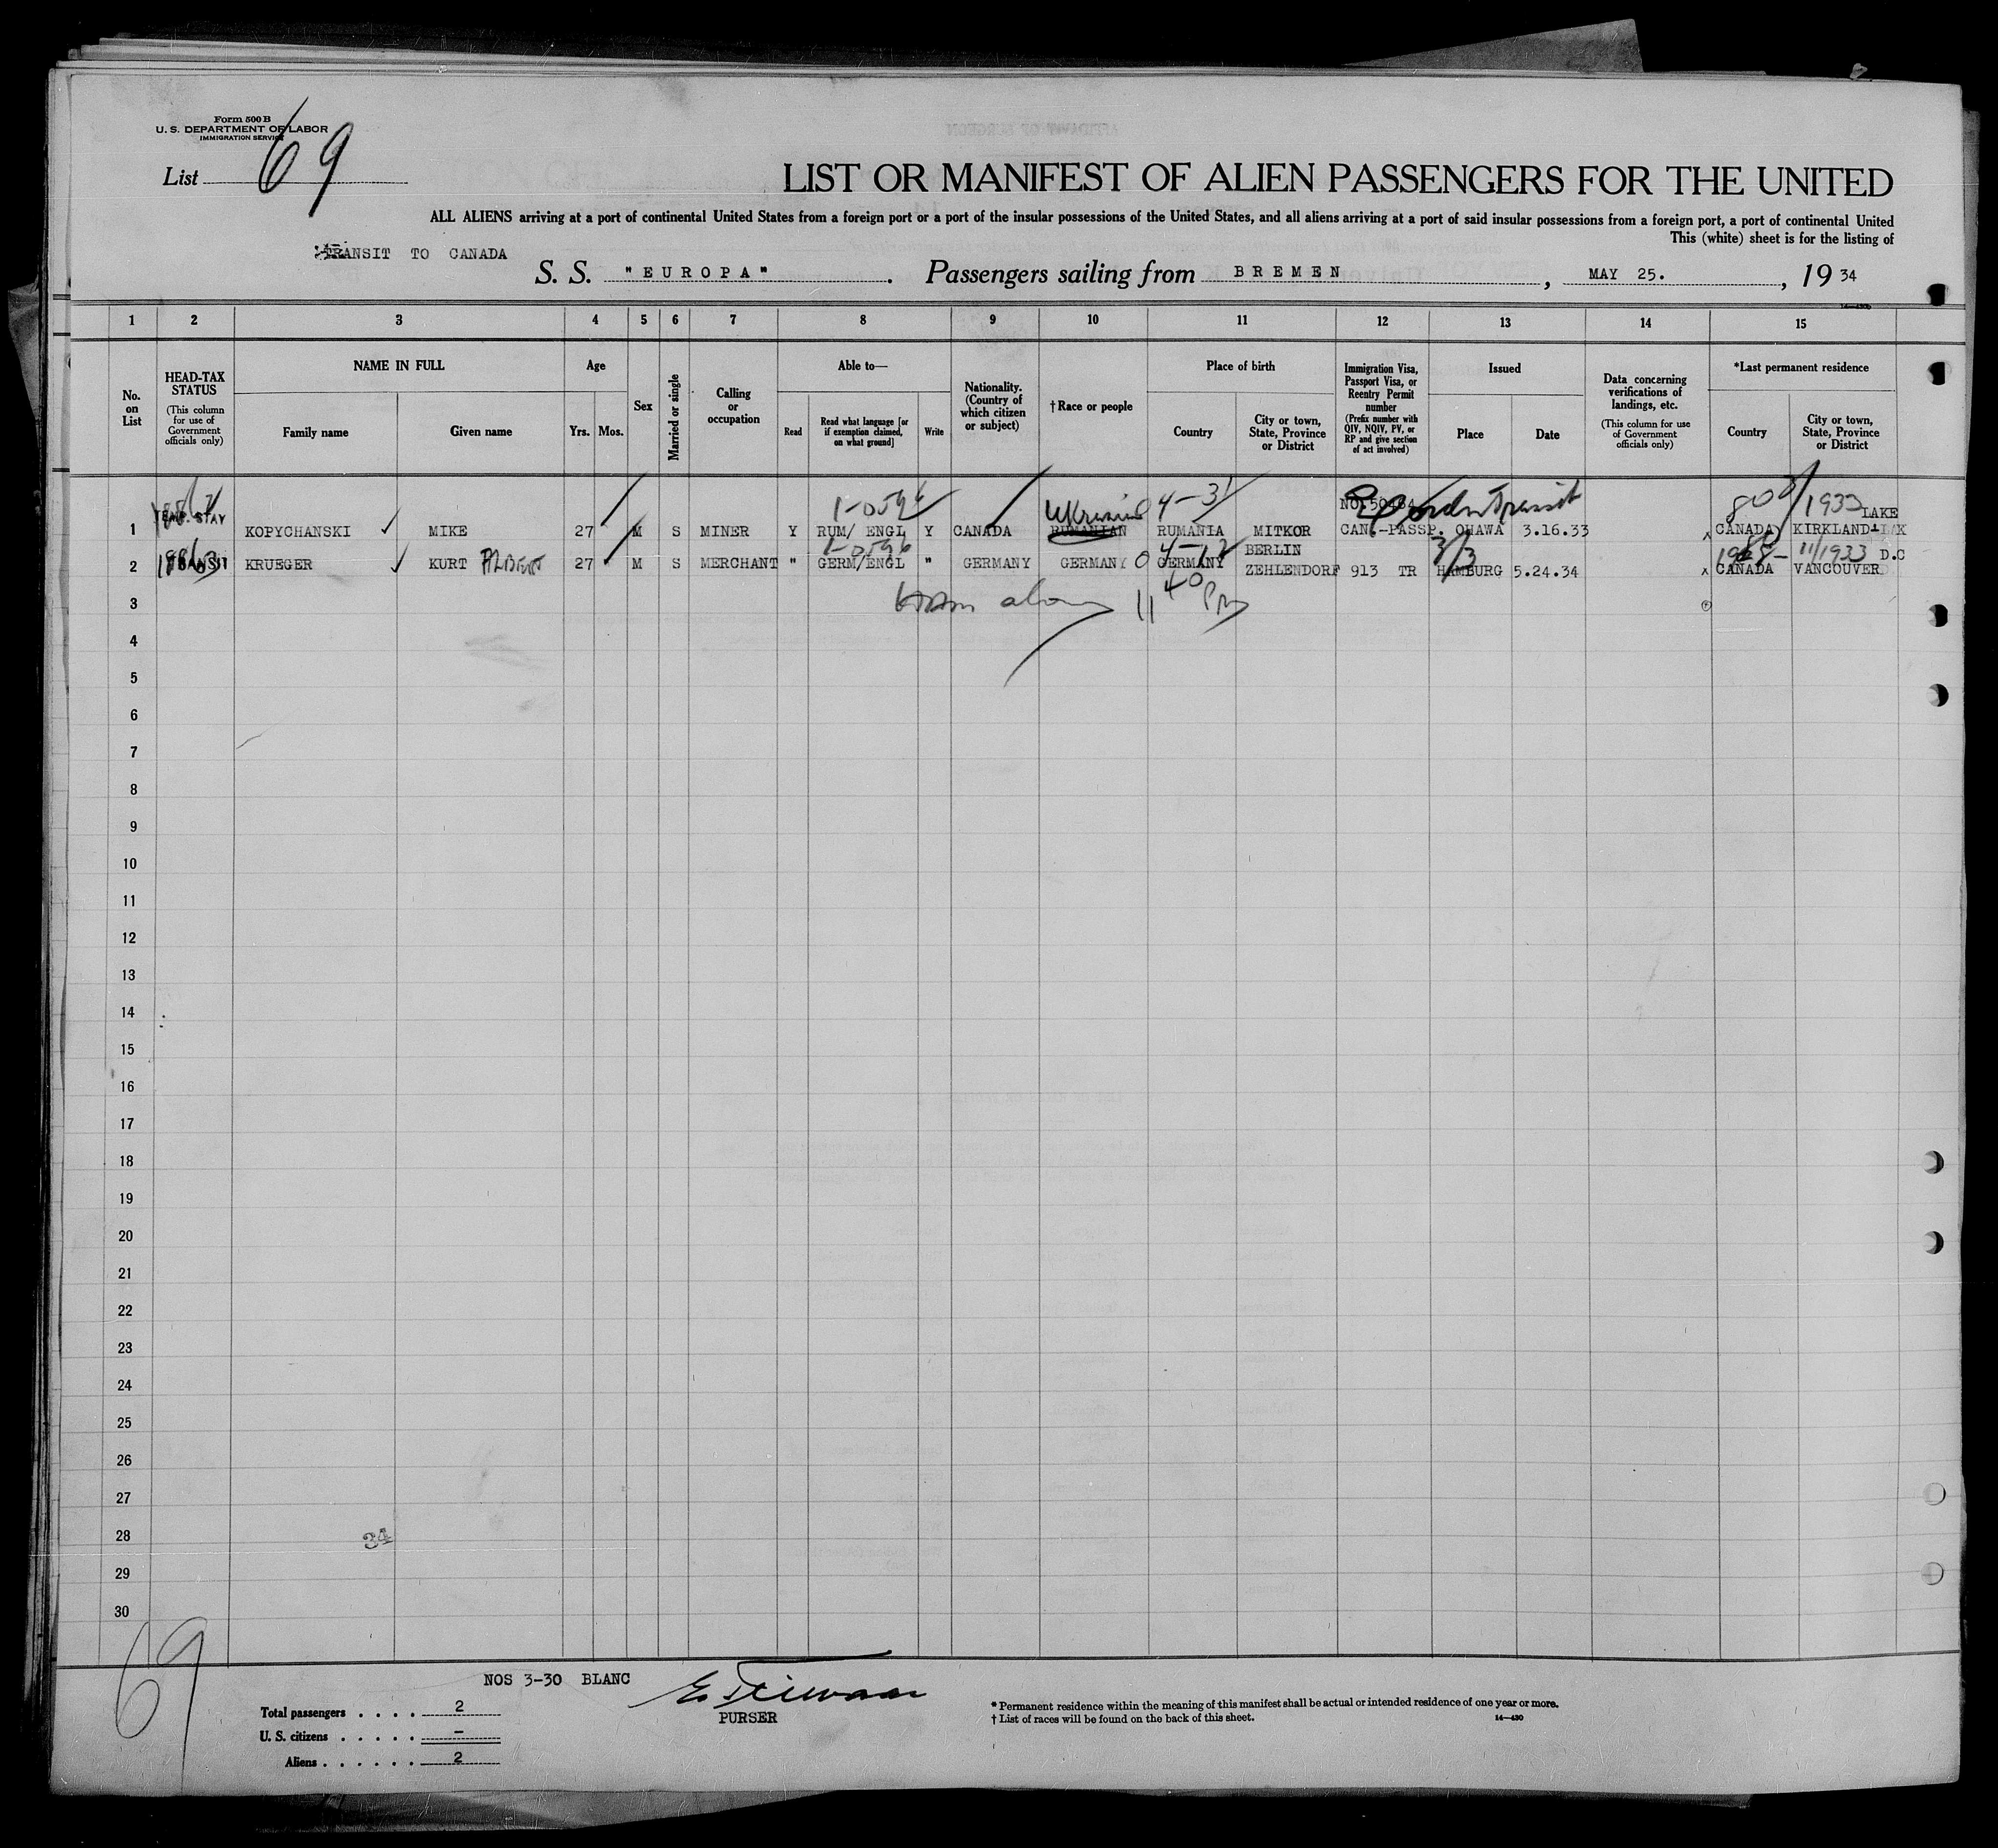 Form 500 B
U. S. DEPARTMENT OF LABOR
IMMIGRATION SERVICE
List 69
LIST OR MANIFEST OF ALIEN PASSENGERS FOR THE UNITED
ALL ALIENS arriving at a port of continental United States from a foreign port or a port of the insular possessions of the United States, and all aliens arriving at a port of said insular possessions from a foreign port, a port of continental United
This (white) sheet is for the listing of
TRANSIT TO CANADA
S. S. "EUROPA". Passengers sailing from BREMEN, MAY 25., 1934
1 2 3 4 5 6 7 8 9 10 11 12 13 14 15
No. on List
HEAD-TAX STATUS (This column for use of Government officials only)
NAME IN FULL
Family name Given name
Age
Yrs. Mos.
Sex
Married or single
Calling or occupation
Able to—
Read
Read what language [or if exemption claimed, on what ground]
Write
Nationality. (Country of which citizen or subject)
†Race or people
Place of birth
Country
City or town, State, Province or District
Immigration Visa, Passport Visa, or Reentry Permit number (Prefix number with QIV, NQIV, PV, or RP and give section of act involved)
Issued
Place Date
Data concerning verifications of landings, etc. (This column for use of Government officials only)
*Last permanent residence
Country
City or town, State, Province or District
1-0596 Ukrainian 4-31 1933 LAKE
1 KOPYCHANSKI MIKE 27 M S MINER Y RUM/ ENGL Y CANADA RUMANIAN RUMANIA MITKOR CAN.-PASSP. OHAWA 3.16.33 CANADA KIRKLAND
1-0596 BERLIN 3/3 11/1933 D.C
2 TRANSIT KRUEGER KURT ALBERT 27 M S MERCHANT " GERM/ENGL " GERMANY GERMANY GERMANY ZEHLENDORF 913 TR HAMBURG 5.24.34 CANADA VANCOUVER
3 11 40 PM
4
5
6
7
8
9
10
11
12
13
14
15
16
17
18
19
20
21
22
23
24
25
26
27
28 34
29
30
69
NOS 3-30 BLANC
PURSER
Total passengers . . . . 2
U. S. citizens . . . . . –
Aliens . . . . . . 2
* Permanent residence within the meaning of this manifest shall be actual or intended residence of one year or more.
† List of races will be found on the back of this sheet.
14—430